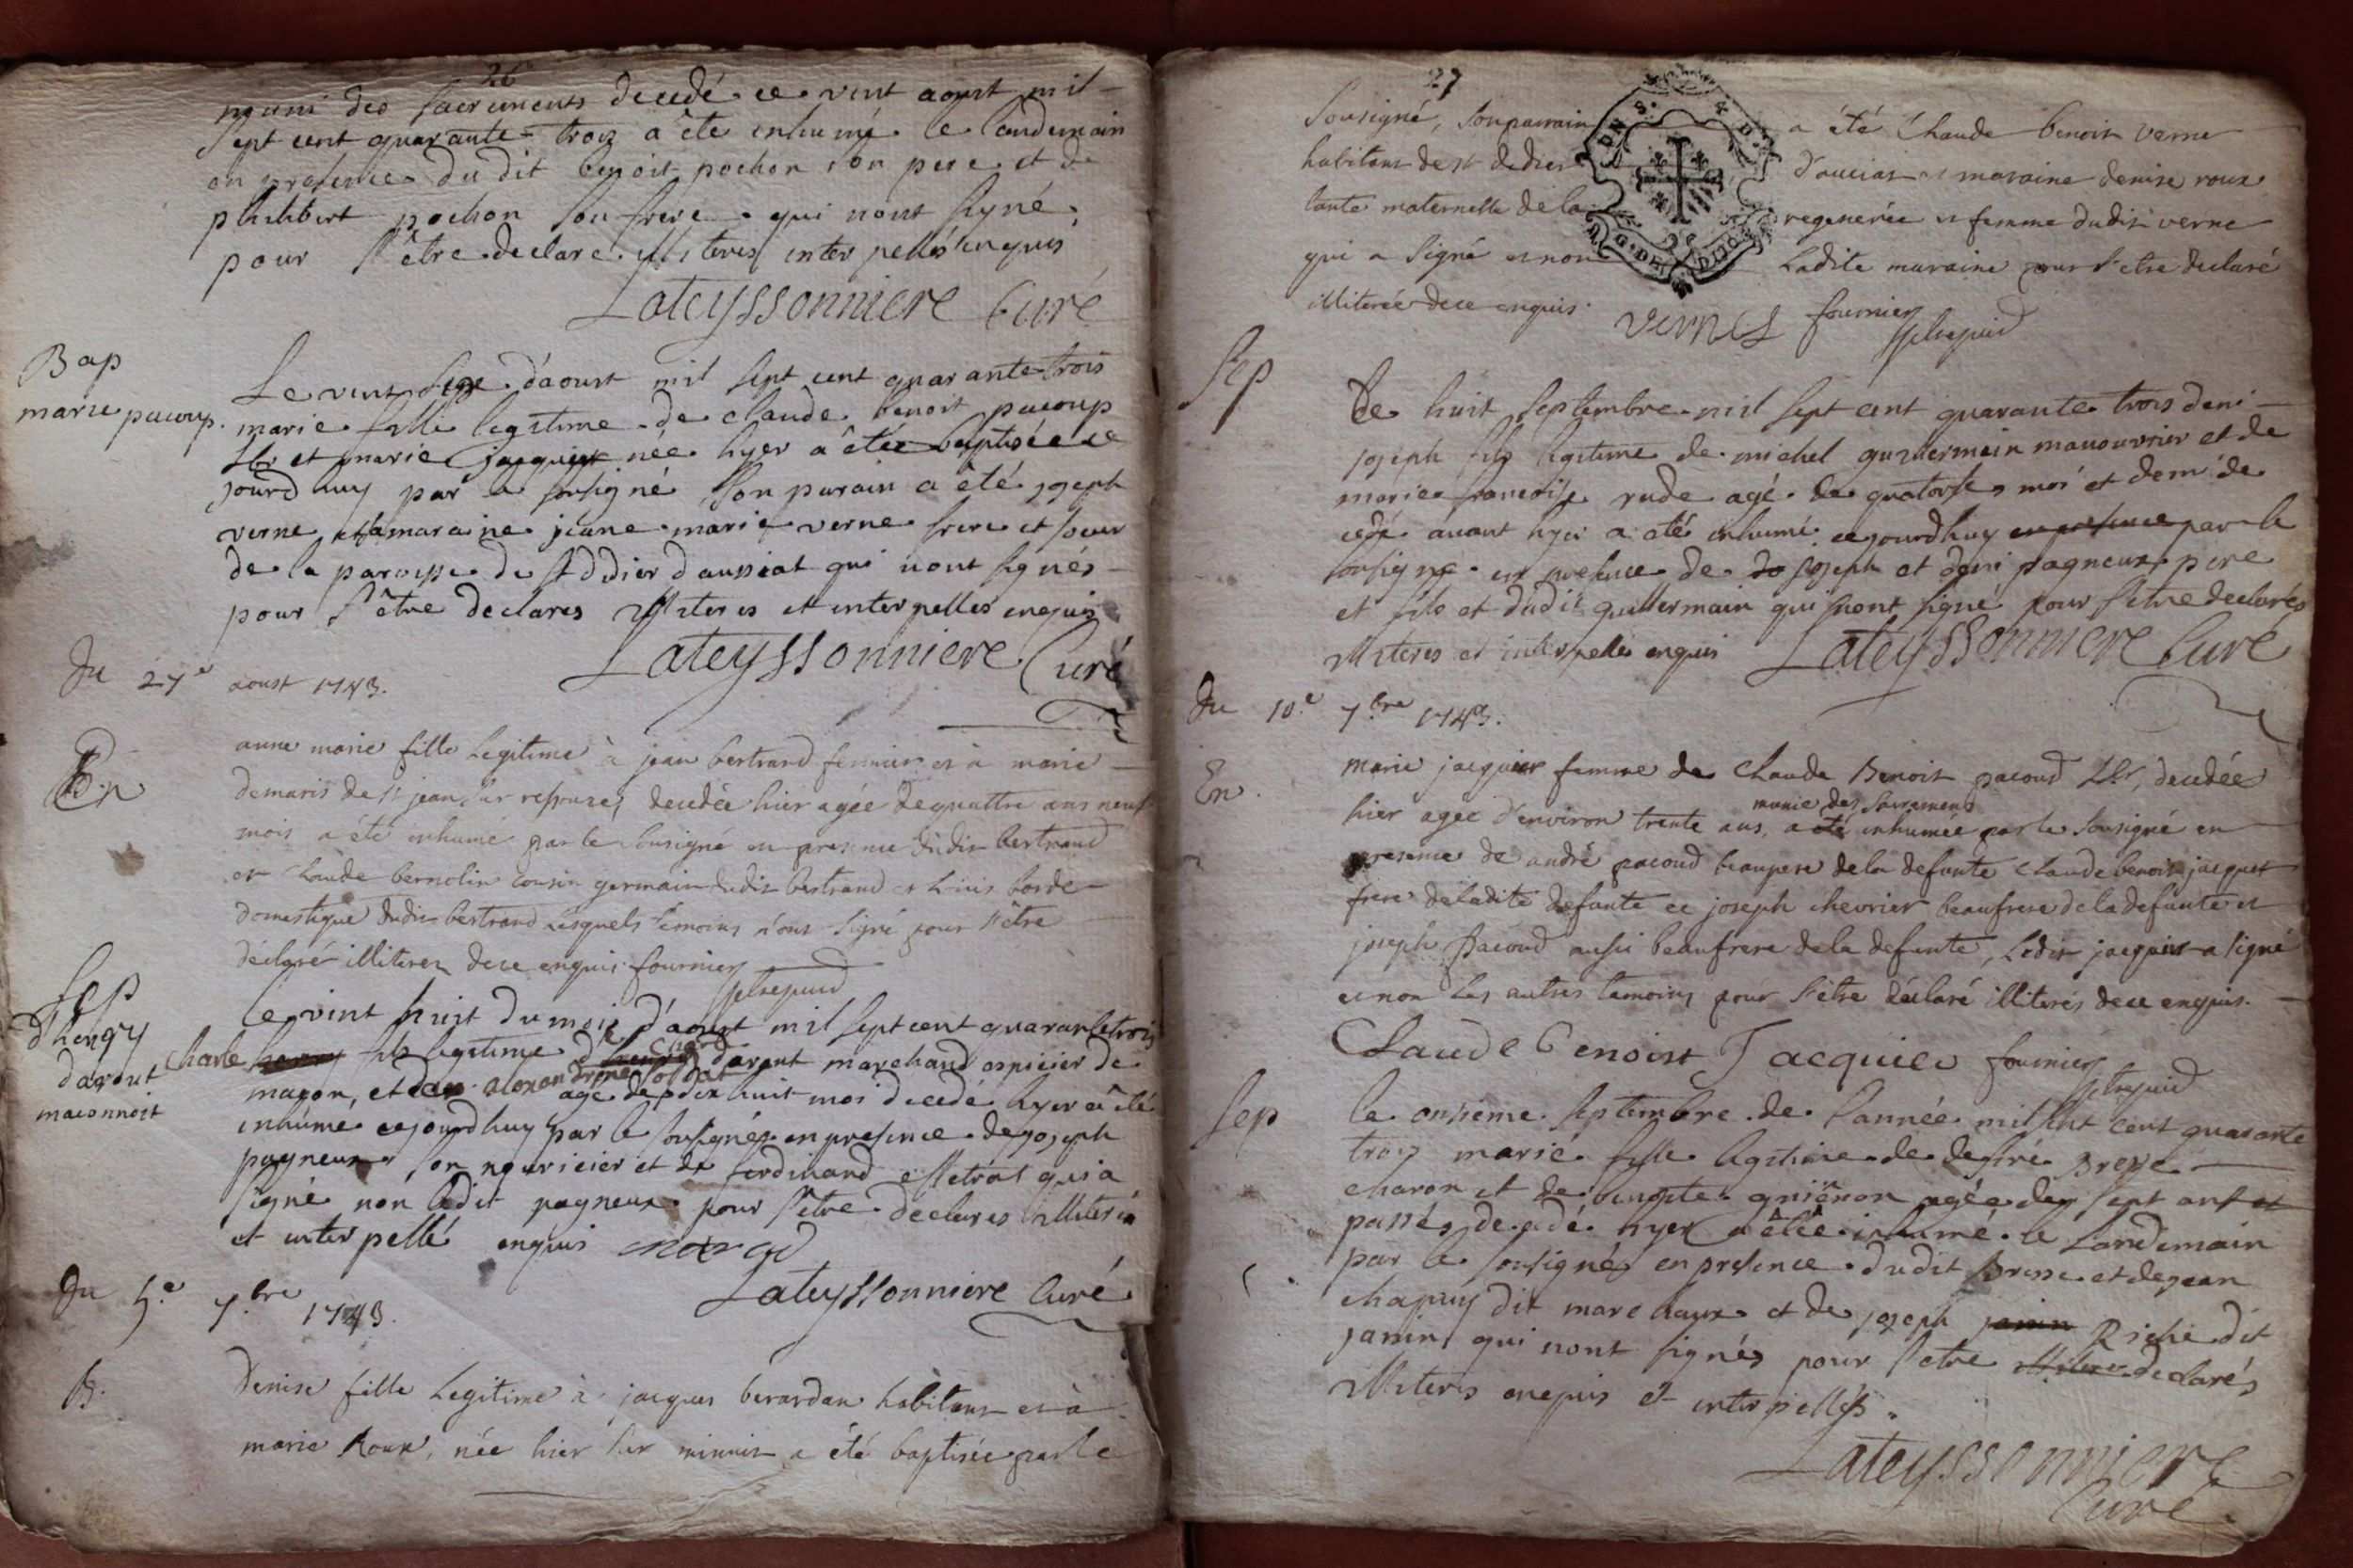 26
muni des sacrements decedé ce vint aoust mil
sept cent quarante-trois a été inhumé le landemain
en presence du dit benoit pochon son pere et de
philibert pochon son frere qui nont signé
pour s'être declare illiteres interpellés enquis
Lateyssonniere Curé
Bap
marie pacoup.
Le vint d'aoust mil sept cent quarante-trois
marie fille legitime de claude benoit pacoup
Lbr et marie jacquier née hyer a étée baptisée ce
jourd huy par le sousigné son parain a été joseph
verne et la maraine jeane marie verne frere et soeur
de la paroisse de st didier d'aussiat qui nont signés
pour s'être declares illiteres et interpelles enquis
Lateyssonniere Curé
Du 27e aoust 1743.
En
anne marie fille legitime à jean bertrand fermier et à marie
demaris de st jean sur resouze, decedée hier agée de quattre ans neuf
mois a été inhumé par le sousigné en presence dudit bertrand
et claude bernolin cousin germain dudit bertrand et louis borde
domestique dudit bertrand lesquels temoins n'ont signé pour s'être
déclaré illiteres de ce enquis fournier
Sep
d'hengry
davout
maconnoit
Le vint huit du mois d'aoust mil sept cent quarante trois
Charle henry fils legitime d'henry charle davout marchand espicier de
macon, et de alexandrine soldat agé de dix huit moi decedé hyer a été
inhúmé cejourdhuy par le sousigné en presence de joseph
pagneux son nouricier et de ferdinand qui a
signé non ledit pagneux pour s'être declares illiterés
et interpellé enquis
Lateyssonniere Curé
Du 5.e 7.bre 1743.
B.
Denise fille legitime à jacques berardan habitant et à
marie Roux, née hier sur minuit a été baptisée par le
27
sousigné, son parrain a été Claude benoit verne
habitant de st didier d'auciat et maraine denise roux
tante maternelle de la regenerée et femme dudit verne
qui a signé et non ladite maraine pour s'etre declaré
illiterée de ce enquis.
vernes fournier
Sep
Le huit septembre mil sept cent quarante trois deni
joseph fils legitime de michel guillermain manouvrier et de
marie francoise rude agé de quatorse moi et demi de
cedé avant hyer a été inhumé cejourdhuy en presence par le
sousigné en presence de joseph et deni pagneux pere
et fils et dudit guillermain qui nont signé pour s'etre declarés
illiteres et interpellés enquis Lateyssonniere Curé
Du 10.e 7.bre 1743.
En.
marie jacquier femme de Claude Benoit pacoud Lbr, decedée
hier agée d'environ trente ans, munie des sacremens a été inhumée par le sousigné en
presence de andré pacoud beaupere de la defunte claude benoit jacquet
frere de ladite defunte et joseph chevrier beaufrere de la defunte et
joseph Pacoud aussi beaufrere de la defunte, ledit jacquier a signé
et non les autres temoins pour s'être déclaré illiterés de ce enquis.
Claude Benoist Jacquier fournier
Sep
le onsieme septembre de l'année mil sept cent quarante
trois marie fille legitime de desiré Bresse
charon et de benoite guienon agée de sept ans et
passés decedé hyer a étée inhumé le landemain
par le sousigné en presence dudit Bresse et de jean
chapuy dit marechaux et de joseph janin Riche dit
janin qui nont signés pour s'etre illiteres declarés
illiteres enquis et interpellés.
Lateyssonniere
Curé